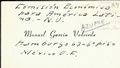 Comisión Económica
para América Lati-
na - N.U.
Manuel García Valverde
Hamburgo 63 - 5º piso
México 6, D.F.